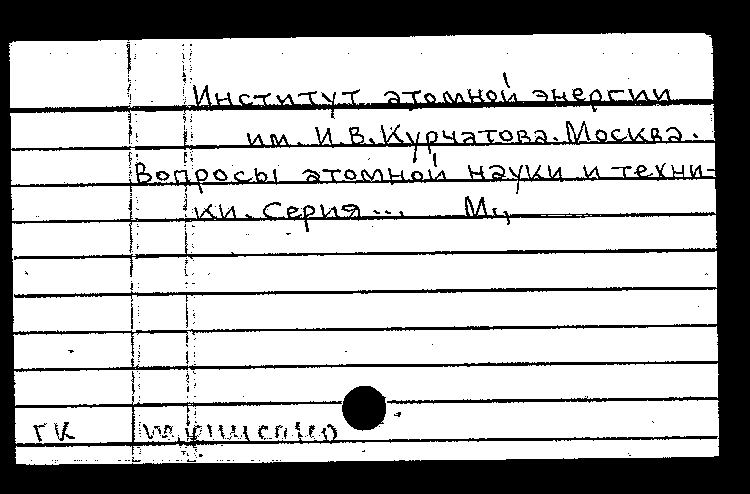 Институт атомной энергии
им. И.В.Курчатова. Москва.
Вопросы атомной науки и техни-
ки. Серия... М.,
ГК